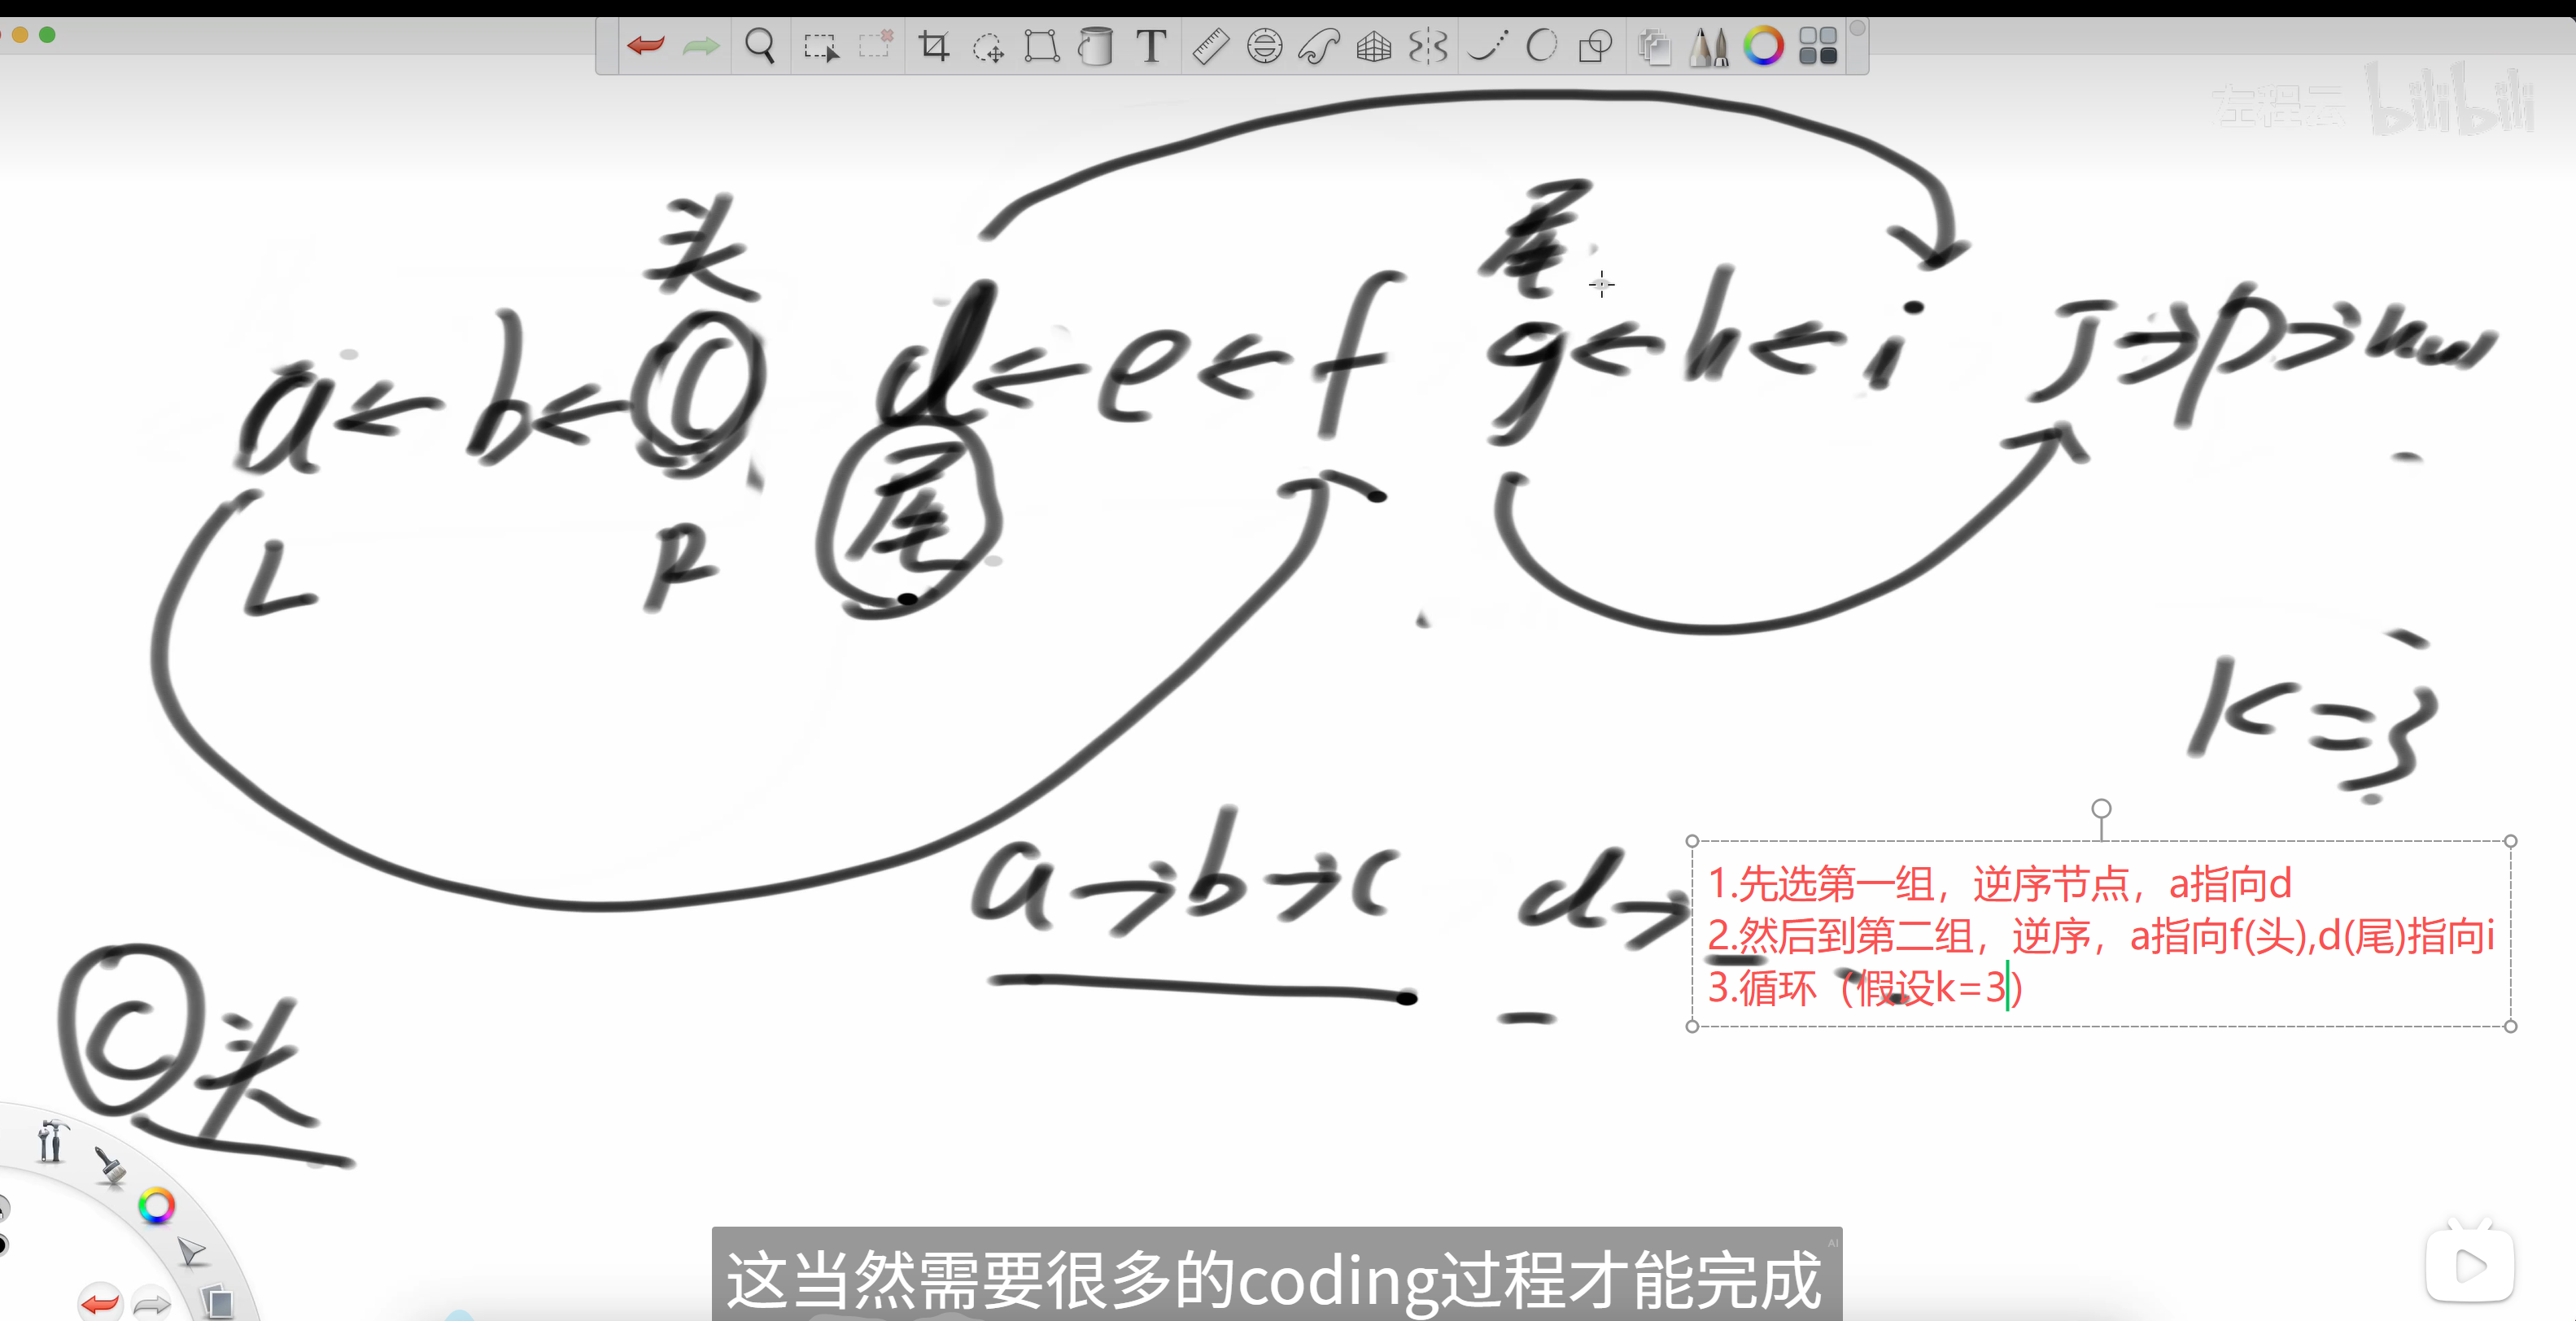 左程云 bilibili
头 尾
a←b←c d←e←f g←h←i j→p→null
尾
L R
k=3
a→b→c d→
1.先选第一组，逆序节点，a指向d
2.然后到第二组，逆序，a指向f(头),d(尾)指向i
3.循环（假设k=3）
c 头
这当然需要很多的coding过程才能完成
AI